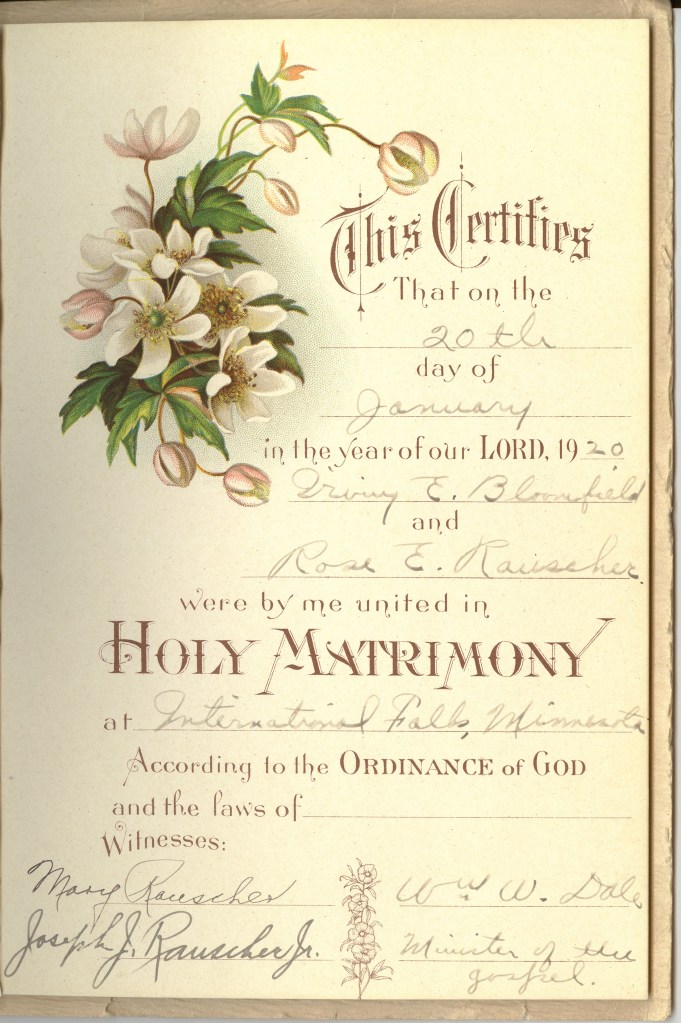 This Certifies
That on the
20th
day of
January
in the year of our LORD, 1920
Irving E. Bloomfield
and
Rose E. Rauscher
were by me united in
HOLY MATRIMONY
at International Falls, Minnesota
According to the ORDINANCE of GOD
and the laws of
Witnesses:
Mary Rauscher
Wm W. Dale
Joseph J. Rauscher Jr.
Minister of the
gospel.